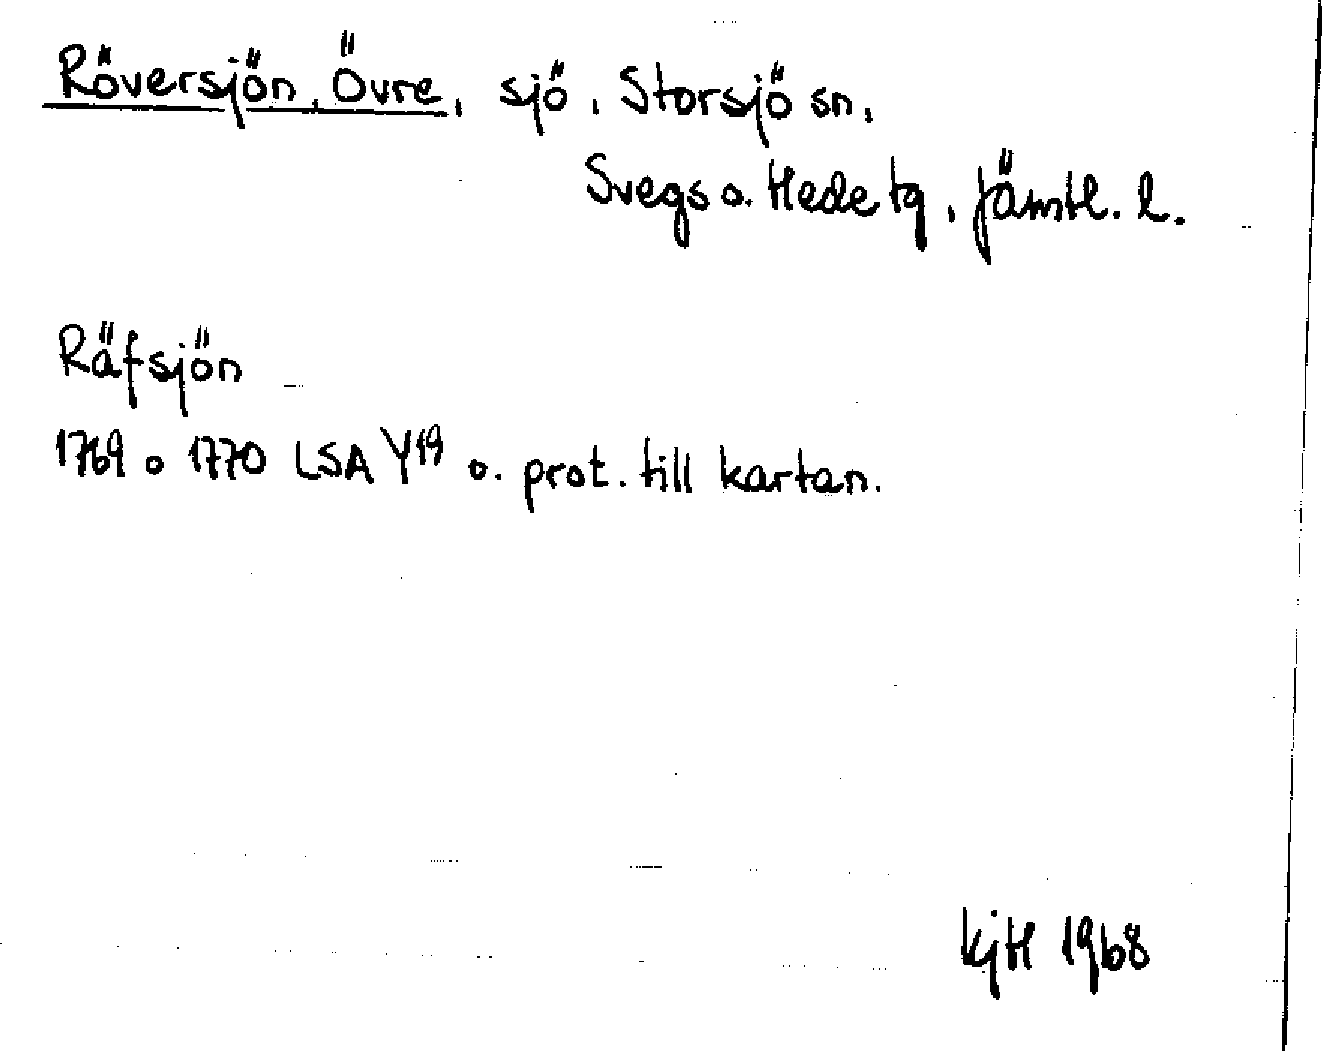 Röversjön, Övre, sjö, Storsjö sn,
Svegs o. Hede tg, Jämtl. l.
Räfsjön
1769 o 1770 LSA Y¹⁹ o. prot. till kartan.
KjH 1968